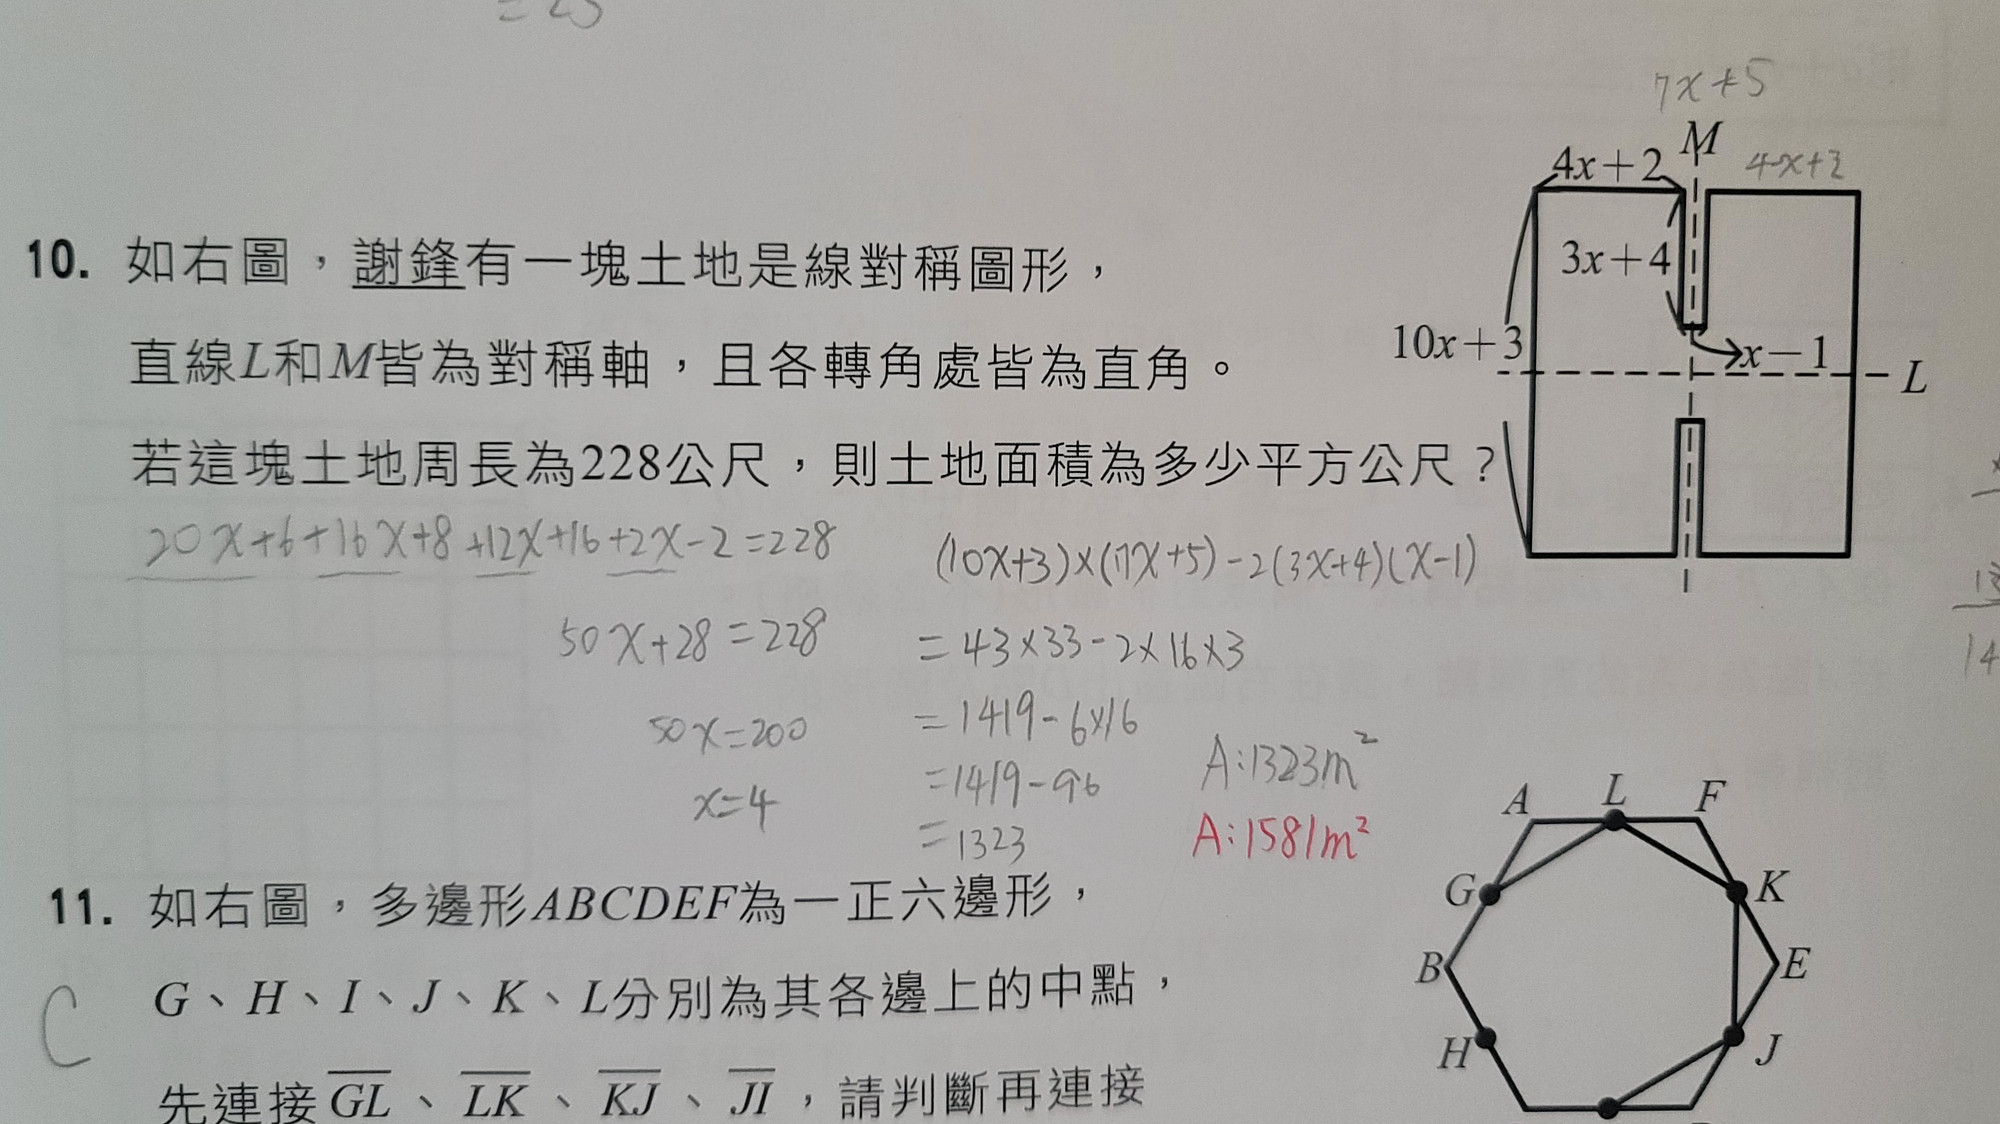 = 25
10. 如右圖，謝鋒有一塊土地是線對稱圖形，
直線L和M皆為對稱軸，且各轉角處皆為直角。
若這塊土地周長為228公尺，則土地面積為多少平方公尺？
7x+5
M
4x+2
4x+2
3x+4
10x+3
x-1
L
20x+6+16x+8+12x+16+2x-2=228
50x+28=228
50x=200
x=4
(10x+3)×(7x+5)-2(3x+4)(x-1)
=43×33-2×16×3
=1419-6×16
=1419-96
=1323
A:1323m²
A:1581m²
11. 如右圖，多邊形ABCDEF為一正六邊形，
C
G、H、I、J、K、L分別為其各邊上的中點，
先連接GL、LK、KJ、JI，請判斷再連接
A
L
F
G
K
B
E
H
J
14